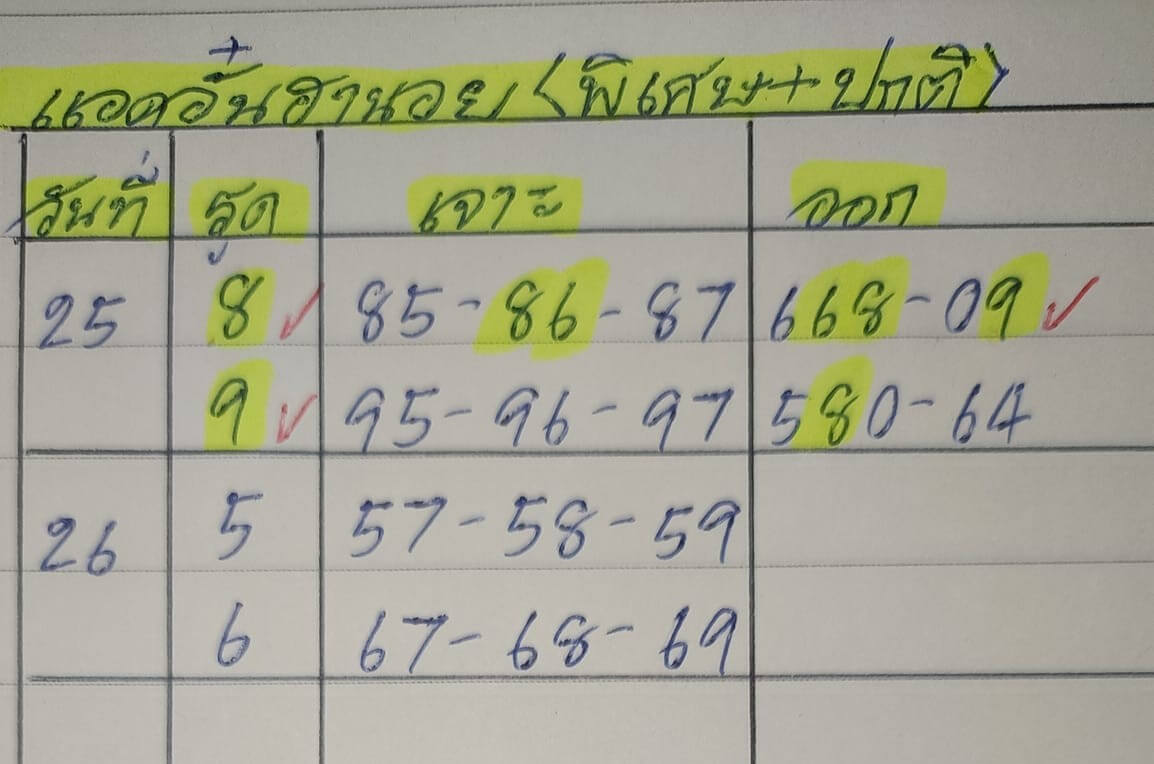 แอดวั้นฮานอย (พิเศษ+ปกติ)
วันที่ รูด เจาะ ออก
25 8 ✓ 85-86-87 668-09 ✓
9 ✓ 95-96-97 580-64
26 5 57-58-59
6 67-68-69